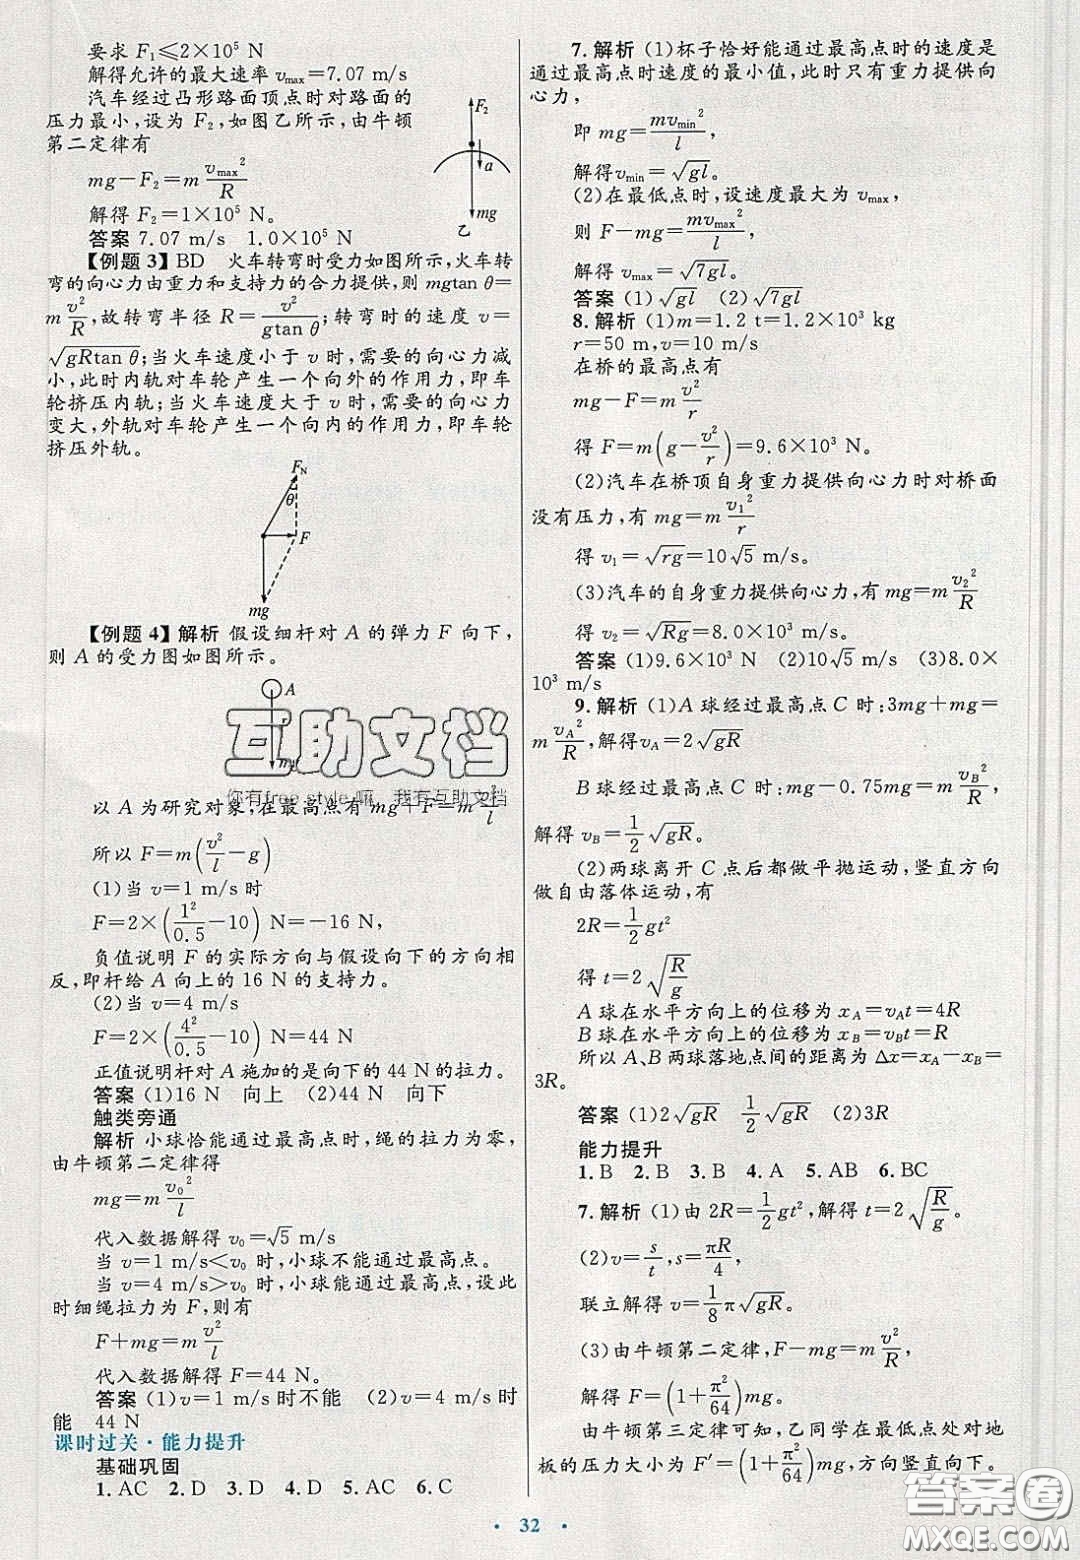 要求 F₁≤2×10⁵ N
解得允许的最大速率 vmax=7.07 m/s
汽车经过凸形路面顶点时对路面的
压力最小,设为 F₂,如图乙所示,由牛顿
第二定律有
mg-F₂=m vmax²/R
解得 F₂=1×10⁵ N。
答案 7.07 m/s 1.0×10⁵ N
F₂
a
mg
乙
【例题 3】BD 火车转弯时受力如图所示,火车转
弯的向心力由重力和支持力的合力提供,则 mgtan θ=
m v²/R,故转弯半径 R=v²/(gtan θ);转弯时的速度 v=
√(gRtan θ);当火车速度小于 v 时,需要的向心力减
小,此时内轨对车轮产生一个向外的作用力,即车
轮挤压内轨;当火车速度大于 v 时,需要的向心力
变大,外轨对车轮产生一个向内的作用力,即车轮
挤压外轨。
FN
θ
F
mg
【例题 4】解析 假设细杆对 A 的弹力 F 向下,
则 A 的受力图如图所示。
A
互助文档
你有free style嘛,我有互助文档
以 A 为研究对象,在最高点有 mg+F=m v²/l
所以 F=m(v²/l-g)
(1)当 v=1 m/s 时
F=2×(1²/0.5-10) N=-16 N,
负值说明 F 的实际方向与假设向下的方向相
反,即杆给 A 向上的 16 N 的支持力。
(2)当 v=4 m/s
F=2×(4²/0.5-10) N=44 N
正值说明杆对 A 施加的是向下的 44 N 的拉力。
答案 (1)16 N 向上 (2)44 N 向下
触类旁通
解析 小球恰能通过最高点时,绳的拉力为零,
由牛顿第二定律得
mg=m v₀²/l
代入数据解得 v₀=√5 m/s
当 v=1 m/s<v₀ 时,小球不能通过最高点。
当 v=4 m/s>v₀ 时,小球能通过最高点,设此
时细绳拉力为 F,则有
F+mg=m v²/l
代入数据解得 F=44 N。
答案 (1)v=1 m/s 时不能 (2)v=4 m/s 时
能 44 N
课时过关·能力提升
基础巩固
1. AC 2. D 3. D 4. D 5. AC 6. C
7. 解析 (1)杯子恰好能通过最高点时的速度是
通过最高点时速度的最小值,此时只有重力提供向
心力,
即 mg=mvmin²/l,
解得 vmin=√(gl)。
(2)在最低点时,设速度最大为 vmax,
则 F-mg=mvmax²/l,
解得 vmax=√(7gl)。
答案 (1)√(gl) (2)√(7gl)
8. 解析 (1)m=1.2 t=1.2×10³ kg
r=50 m,v=10 m/s
在桥的最高点有
mg-F=m v²/r
得 F=m(g-v²/r)=9.6×10³ N。
(2)汽车在桥顶自身重力提供向心力时对桥面
没有压力,有 mg=m v₁²/r
得 v₁=√(rg)=10√5 m/s。
(3)汽车的自身重力提供向心力,有 mg=m v₂²/R
得 v₂=√(Rg)=8.0×10³ m/s。
答案 (1)9.6×10³ N (2)10√5 m/s (3)8.0×
10³ m/s
9. 解析 (1)A 球经过最高点 C 时:3mg+mg=
m vA²/R,解得 vA=2√(gR)
B 球经过最高点 C 时:mg-0.75mg=m vB²/R,
解得 vB=1/2 √(gR)。
(2)两球离开 C 点后都做平抛运动,竖直方向
做自由落体运动,有
2R=1/2 gt²
得 t=2√(R/g)
A 球在水平方向上的位移为 xA=vAt=4R
B 球在水平方向上的位移为 xB=vBt=R
所以 A、B 两球落地点间的距离为 Δx=xA-xB=
3R。
答案 (1)2√(gR) 1/2 √(gR) (2)3R
能力提升
1. B 2. B 3. B 4. A 5. AB 6. BC
7. 解析 (1)由 2R=1/2 gt²,解得 t=2√(R/g)。
(2)v=s/t,s=πR/4,
联立解得 v=1/8 π√(gR)。
(3)由牛顿第二定律,F-mg=m v²/R,
解得 F=(1+π²/64)mg。
由牛顿第三定律可知,乙同学在最低点处对地
板的压力大小为 F′=(1+π²/64)mg,方向竖直向下。
· 32 ·
答案圈
MXQE.COM